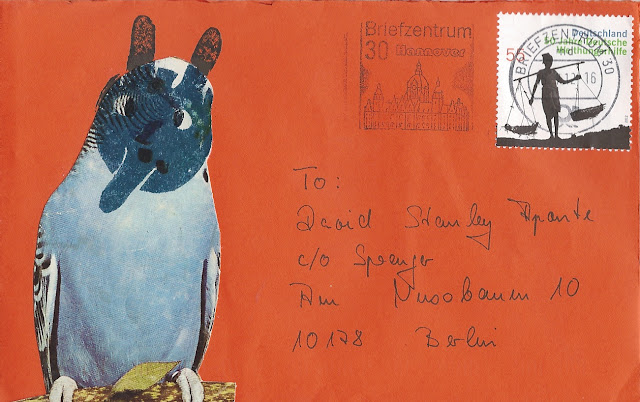 Briefzentrum
30 Hannover
Deutschland
50 Jahre Deutsche
Welthungerhilfe
55
BRIEFZENTRUM 30
16
To:
David Stanley Aponte
c/o Sprenger
Am Nussbaum 10
10178 Berlin